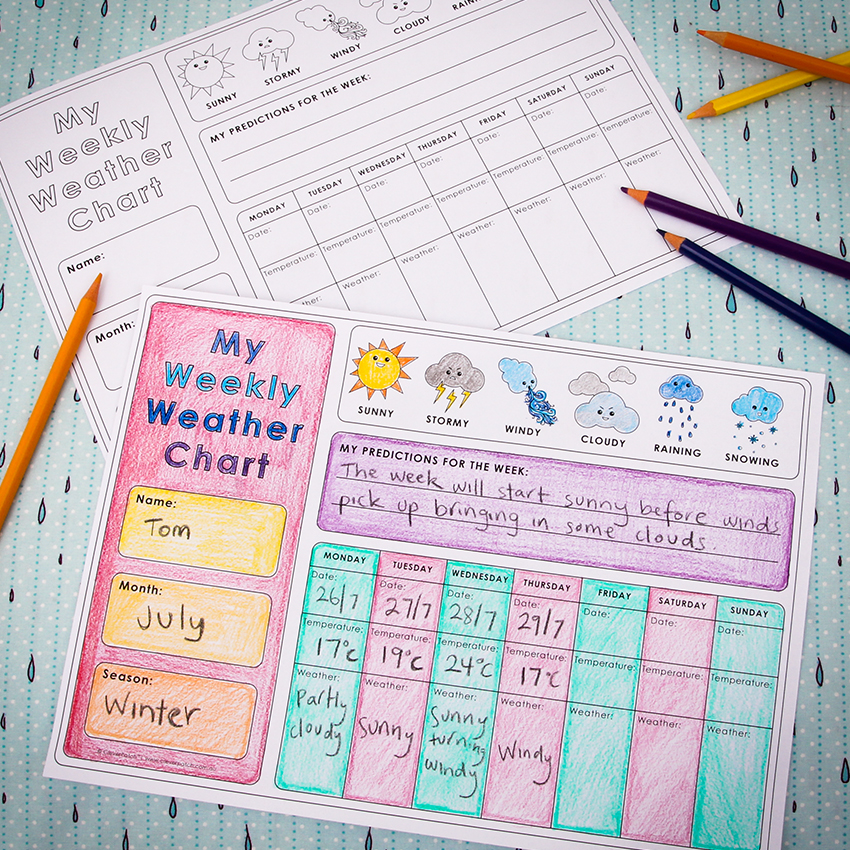 SUNNY
STORMY
WINDY
CLOUDY
My
Weekly
Weather
Chart
MY PREDICTIONS FOR THE WEEK:
MONDAY TUESDAY WEDNESDAY THURSDAY FRIDAY SATURDAY SUNDAY
Date: Date: Date: Date: Date: Date: Date:
Temperature: Temperature: Temperature: Temperature: Temperature: Temperature: Temperature:
Weather: Weather: Weather: Weather: Weather: Weather: Weather:
Name:
Month:
My
Weekly
Weather
Chart
Name:
Tom
Month:
July
Season:
Winter
SUNNY STORMY WINDY CLOUDY RAINING SNOWING
MY PREDICTIONS FOR THE WEEK:
The week will start sunny before winds
pick up bringing in some clouds.
MONDAY TUESDAY WEDNESDAY THURSDAY FRIDAY SATURDAY SUNDAY
Date: Date: Date: Date: Date: Date: Date:
26/7 27/7 28/7 29/7
Temperature: Temperature: Temperature: Temperature: Temperature: Temperature: Temperature:
17°c 19°c 24°c 17°c
Weather: Weather: Weather: Weather: Weather: Weather: Weather:
Partly
cloudy
Sunny
Sunny
turning
windy
Windy